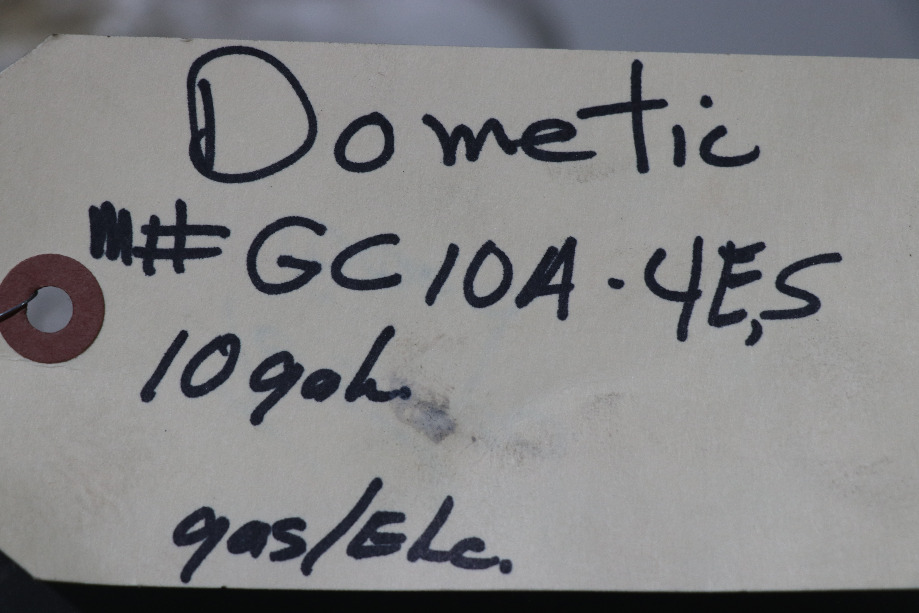 Dometic
m# GC10A-4E,S
10 gal.
gas/Elc.